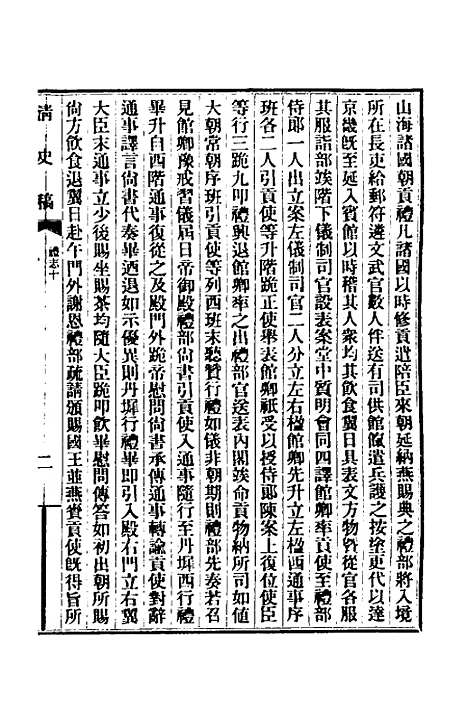 山海諸國朝貢禮凡諸國以時修貢遣陪臣來朝延納燕賜典之禮部將入境
所在長吏給郵符遴文武官數人伴送有司供館餼遣兵護之按塗更代以達
京畿旣至延入賓館以時稽其人衆均其飲食翼日具表文方物暨從官各服
其服詣部竢階下儀制司官設表案堂中質明會同四譯館卿率貢使至禮部
侍郎一人出立案左儀制司官二人分立左右楹館卿先升立左楹西通事序
班各二人引貢使等升階跪正使舉表館卿祇受以授侍郎陳案上復位使臣
等行三跪九叩禮興退館卿率之出禮部官送表內閣竢命貢物納所司如值
大朝常朝序班引貢使等列西班末聽贊行禮如儀非朝期則禮部先奏若召
見館卿豫戒習儀屆日帝御殿禮部尚書引貢使入通事隨行至丹墀西行禮
畢升自西階通事復從之及殿門外跪帝慰問尚書承傳通事轉諭貢使對辭
通事譯言尚書代奏畢酒退如示優異則丹墀行禮畢即引入殿右門立右翼
大臣末通事立少後賜坐賜茶均隨大臣跪叩飲畢慰問傳答如初出朝所賜
尚方飲食退翼日赴午門外謝恩禮部疏請頒賜國王並燕賚貢使旣得旨所
清史稿
禮志十
二